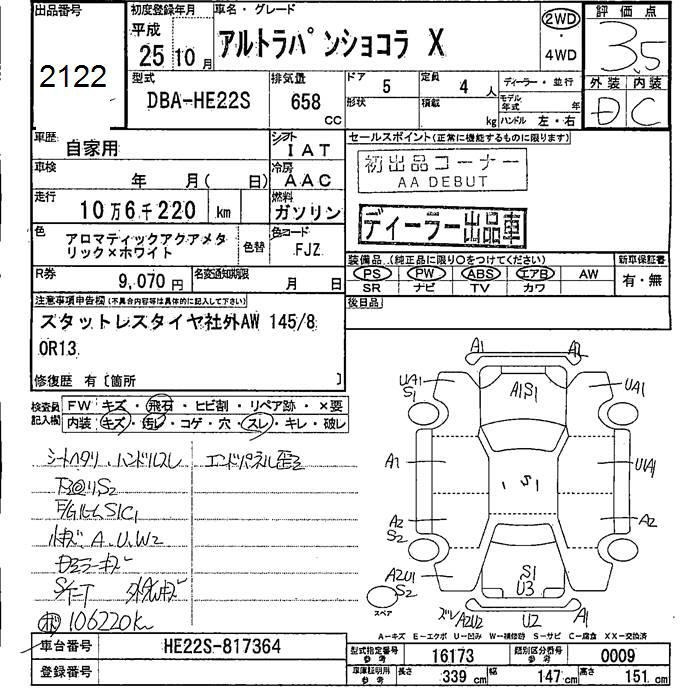 出品番号 初度登録年月 車名・グレード 2WD 評価点
平成 25 10月 アルトラパンショコラ X ・ 3.5
2122 4WD
型式 排気量 ドア 定員 ディーラー・並行 外装 内装
DBA-HE22S 658 CC 5 4 人 モデル年式 年 D C
形状 積載 kg ハンドル 左・右
車歴 自家用 シフト IAT セールスポイント(正常に機能するものに限ります)
車検 年 月( 日) 冷房 AAC 初出品コーナー
AA DEBUT
走行 10万6千220 km 燃料 ガソリン ディーラー出品車
色 アロマティックアクアメタ 色替 色コード FJZ
リック×ホワイト
装備品 (純正品に限り○をつけてください) 新車保証書
R券 9,070円 名変通知期限 月 日 PS PW ABS エアB AW 有・無
SR ナビ TV カワ
注意事項申告欄(不具合内容等は具体的に記入して下さい) 後日品
スタットレスタイヤ社外AW 145/8
0R13
修復歴 有〔箇所 〕
検査員記入欄 FW キズ・飛石・ヒビ割・リペア跡・×要
内装 キズ・汚レ・コゲ・穴・スレ・キレ・破レ
シートヘタリ、ハンドルスレ エンドパネル歪ミ
A.U.W2
106220K
A1 A2
UA1 S1 A1S1 UA1
A1 S1 U1A1
A2 S2 A2
A2U1 S2 S1 U3
スペア A2U2 U2 A1
A-キズ E-エクボ U-凹み W-補修跡 S-サビ C-腐食 XX-交換済
車台番号 HE22S-817364 型式指定番号 参考 16173 類別区分番号 参考 0009
登録番号 車庫証明用 参考 長さ 339 cm 幅 147 cm 高さ 151 cm